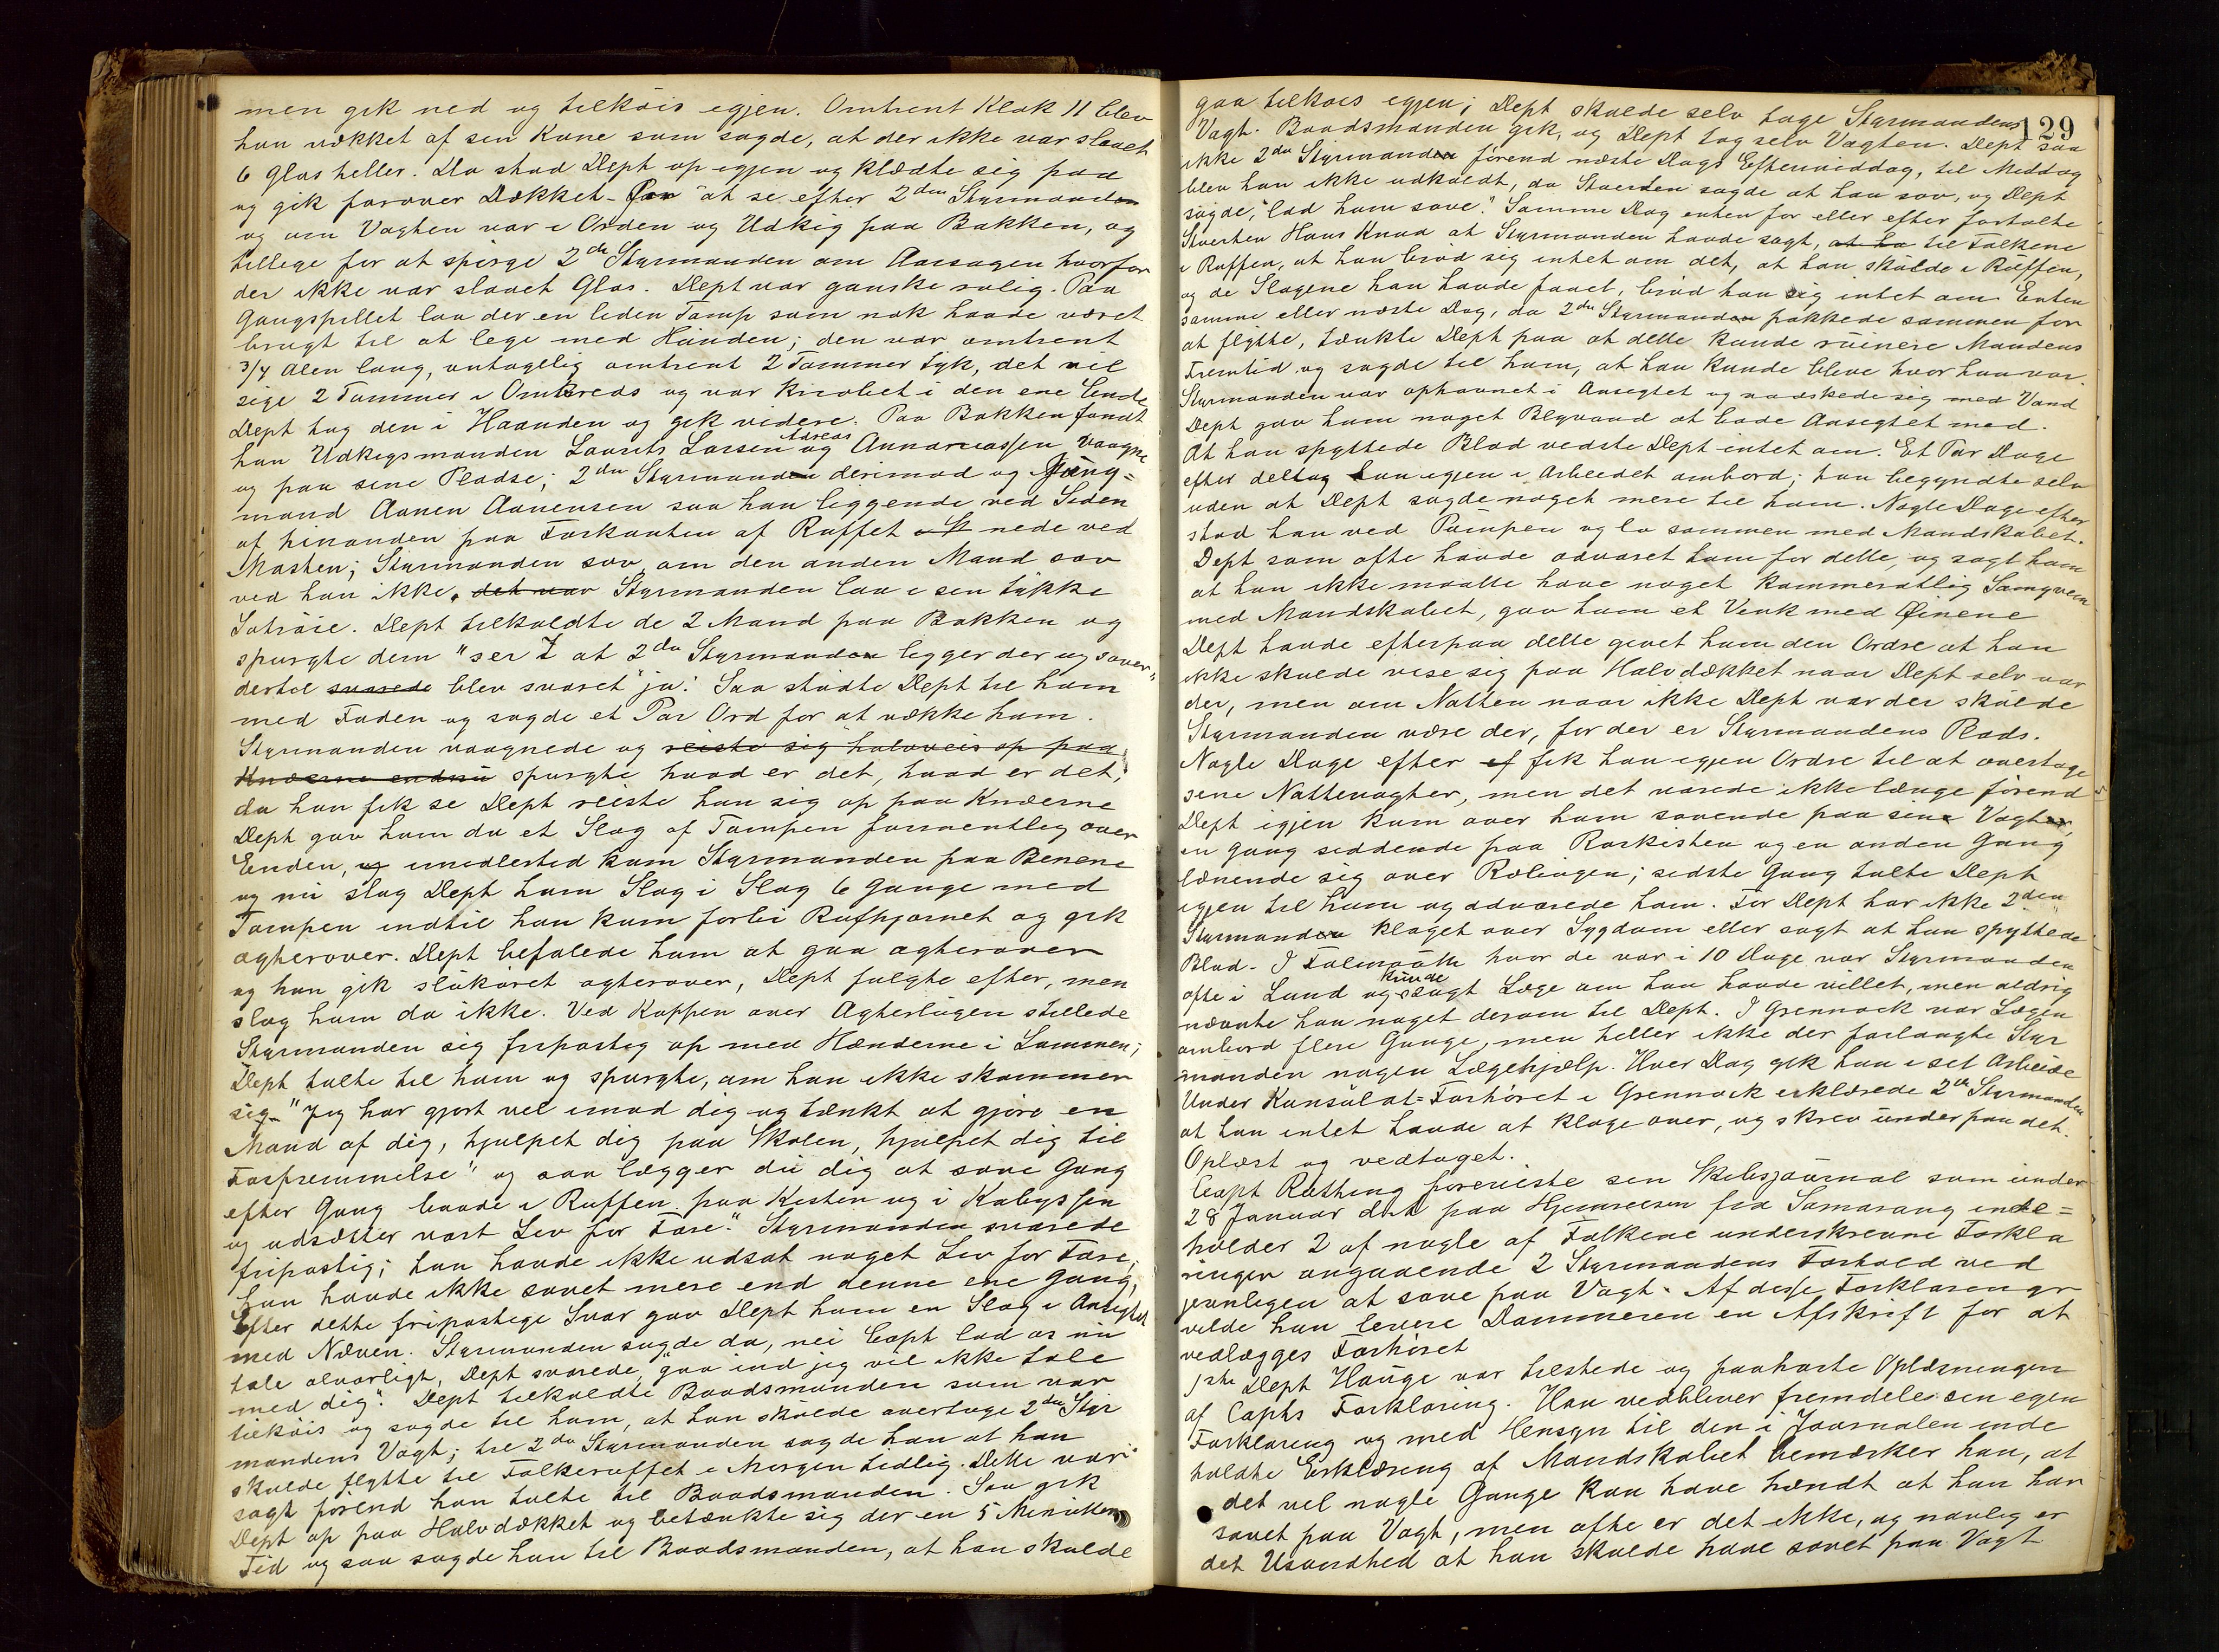 men gik ned og tilköis igjen. Omtrent Klok 11 blev
han vækket af sin Kone som sagde, at der ikke var slaaet
6 Glas heller. Da stod Dept op igjen og klædte sig paa
og gik forover Dækket for at se efter 2den Styrmanden
og om Vagten var i Orden og Udkig paa Bakken, og
tillige for at spörge 2de Styrmanden om Aarsagen hvorfor
der ikke var slaaet Glas. Dept var ganske rolig. Paa
Gangspillet laa der en liden Tamp som nok havde været
brugt til at lege med Hunden; den var omtrent
3/4 Alen lang, antagelig omtrent 2 Tommer tyk, det vil
sige 2 Tommer i Omkreds og var knobet i den ene Ende
Dept tog den i Haanden og gik videre. Paa Bakken fandt
han Udkigsmanden Laurits Larsen og Andreas Annaniassen vaagne
og paa sine Pladse; 2den Styrmanden derimod og Jung=
mand Aanen Aanensen saa han liggende ved Siden
af hinanden paa Forkanten af Ruffet nede ved
Masten; Styrmanden sov, om den anden Mand sov
ved han ikke. det var Styrmanden laa i sin tykke
Dept tilkaldte de 2 Mand paa Bakken og
spurgte dem "ser I at 2den Styrmanden ligger der og sover"
dertil svarede blev svaret "ja". Saa stödte Dept til ham
med Foden og sagde et Par Ord for at vække ham.
Styrmanden vaagnede og reiste sig halvveis op paa
Knæerne endnu spurgte hvad er det, hvad er det,
da han fik se Dept reiste han sig op paa Knæerne
Dept gav ham da et Slag af Tampen formentlig over
Enden, og imidlertid kom Styrmanden paa Benene
og nu slog Dept ham Slag i Slag 6 Gange med
Tampen indtil han kom forbi Rufhjørnet og gik
agterover. Dept befalede ham at gaa agterover
og han gik slukøret agterover, Dept fulgte efter, men
slog ham da ikke. Ved Kappen over Agterlugen stillede
Styrmanden sig fripostig op med Hænderne i Lommen;
Dept talte til ham og spurgte, om han ikke skammer
sig. "Jeg har gjort vel imod dig og tænkt at gjøre en
Mand af dig, hjulpet dig paa Skolen, hjulpet dig til
Forfremmelse" og saa lægger du dig at sove Gang
efter Gang baade i Ruffen paa Kisten og i Kabyssen
og udsætter vort Liv for Fare." Styrmanden svarede
fripostig; han havde ikke udsat noget Liv for Fare,
han havde ikke sovet mere end denne ene Gang,
Efter dette fripostige Svar gav Dept ham en Slag i Ansigtet
med Næven. Styrmanden sagde da, nei Capt lad os nu
tale alvorligt, Dept svarede, "gaa ind jeg vil ikke tale
med dig." Dept tilkaldte Baadsmanden som var
tilköis og sagde til ham, at han skulde overtage 2den Styr
mandens Vagt; til 2den Styrmanden sagde han at han
skulde flytte til Folkeruffet i Morgen tidlig. Dette var
sagt förend han talte til Baadsmanden. Saa gik
Dept op paa Halvdækket og betænkte sig der en 5 Minutters
Tid og saa sagde han til Baadsmanden, at han skulde
129
gaa tilköis igjen; Dept skulde selv tage Styrmandens
Vagt. Baadsmanden gik, og Dept tog selv Vagten. Dept saa
ikke 2den Styrmanden förend næste Dags Eftermiddag, til Middag
blev han ikke udkaldt, da Stuerten sagde at han sov, og Dept
sagde, "lad ham sove." Samme Dag enten for eller efter fortalte
Stuerten Hans Knud at Styrmanden havde sagt, at ha til Folkene
i Ruffen, at han bröd sig intet om det, at han skulde i Ruffen,
og de Slagene han havde faaet, bröd han sig intet om. Enten
samme eller næste Dag, da 2den Styrmanden pakkede sammen for
at flytte, tænkte Dept paa at dette kunde ruinere Mandens
Fremtid og sagde til ham, at han kunde blive hvor han var.
Styrmanden var ophovnet i Ansigtet og vadskede sig med Vand
Dept gav ham noget Blyvand at bade Ansigtet med.
At han spyttede Blod vidste Dept intet om. Et Par Dage
efter deltog han igjen i Arbeidet ombord; han begyndte selv
uden at Dept sagde noget mere til ham. Nogle Dage efter
stod han ved Pumpen og lo sammen med Mandskabet.
Dept som ofte havde advaret ham for dette, og sagt ham
at han ikke maatte have noget kammeratlig Samqvem
med Mandskabet, gav ham et Vink med Øinene
Dept havde efterpaa dette givet ham den Ordre at han
ikke skulde vise sig paa Halvdækket naar Dept selv var
der, men om Natten naar ikke Dept var der skulde
Styrmanden være der, for der er Styrmandens Plads.
Nogle Dage efter ef fik han igjen Ordre til at overtage
sine Nattevagter, men det varede ikke længe förend
Dept igjen kom over ham sovende paa sine Vagter,
en Gang siddende paa Rorkisten og en anden Gang
lænende sig over Rælingen; sidste Gang talte Dept
igjen til ham og advarede ham. For Dept har ikke 2den
Styrmanden klaget over Sygdom eller sagt at han spyttede
Blod. I Falmouth hvor de var i 10 Dage var Styrmanden
ofte i Land og kunde sögt Læge om han havde villet, men aldrig
nævnte han noget derom til Dept. I Grennock var Lægen
ombord flere Gange, men heller ikke der forlangte Styr
manden nogen Lægehjælp. Hver Dag gik han i sit Arbeide
Under Konsulat=Forhöret i Grennock erklærede 2de Styrmanden
at han intet havde at klage over, og skrev under paa det.
Oplæst og vedtaget.
Capt Røthing foreviste sin Skibsjournal som under
28 Januar d.A. paa Hjemreisen fra Samarang inde=
holder 2 af nogle af Folkene underskrevne Forkla
ringer angaaende 2 Styrmandens Forhold ved
jevnligen at sove paa Vagt. Af disse Forklaringer
vilde han levere Dommeren en Afskrift for at
vedlægges Forhöret
1ste Dept Hauge var tilstede og paahørte Oplæsningen
af Capts Forklaring. Han vedbliver fremdeles sin egen
Forklaring og med Hensyn til den i Journalen inde
holdte Erklæring af Mandskabet bemærker han, at
det vel nogle Gange kan have hændt at han har
sovet paa Vagt, men ofte er det ikke, og navnlig er
det Usandhed at han skulde have sovet paa Vagt